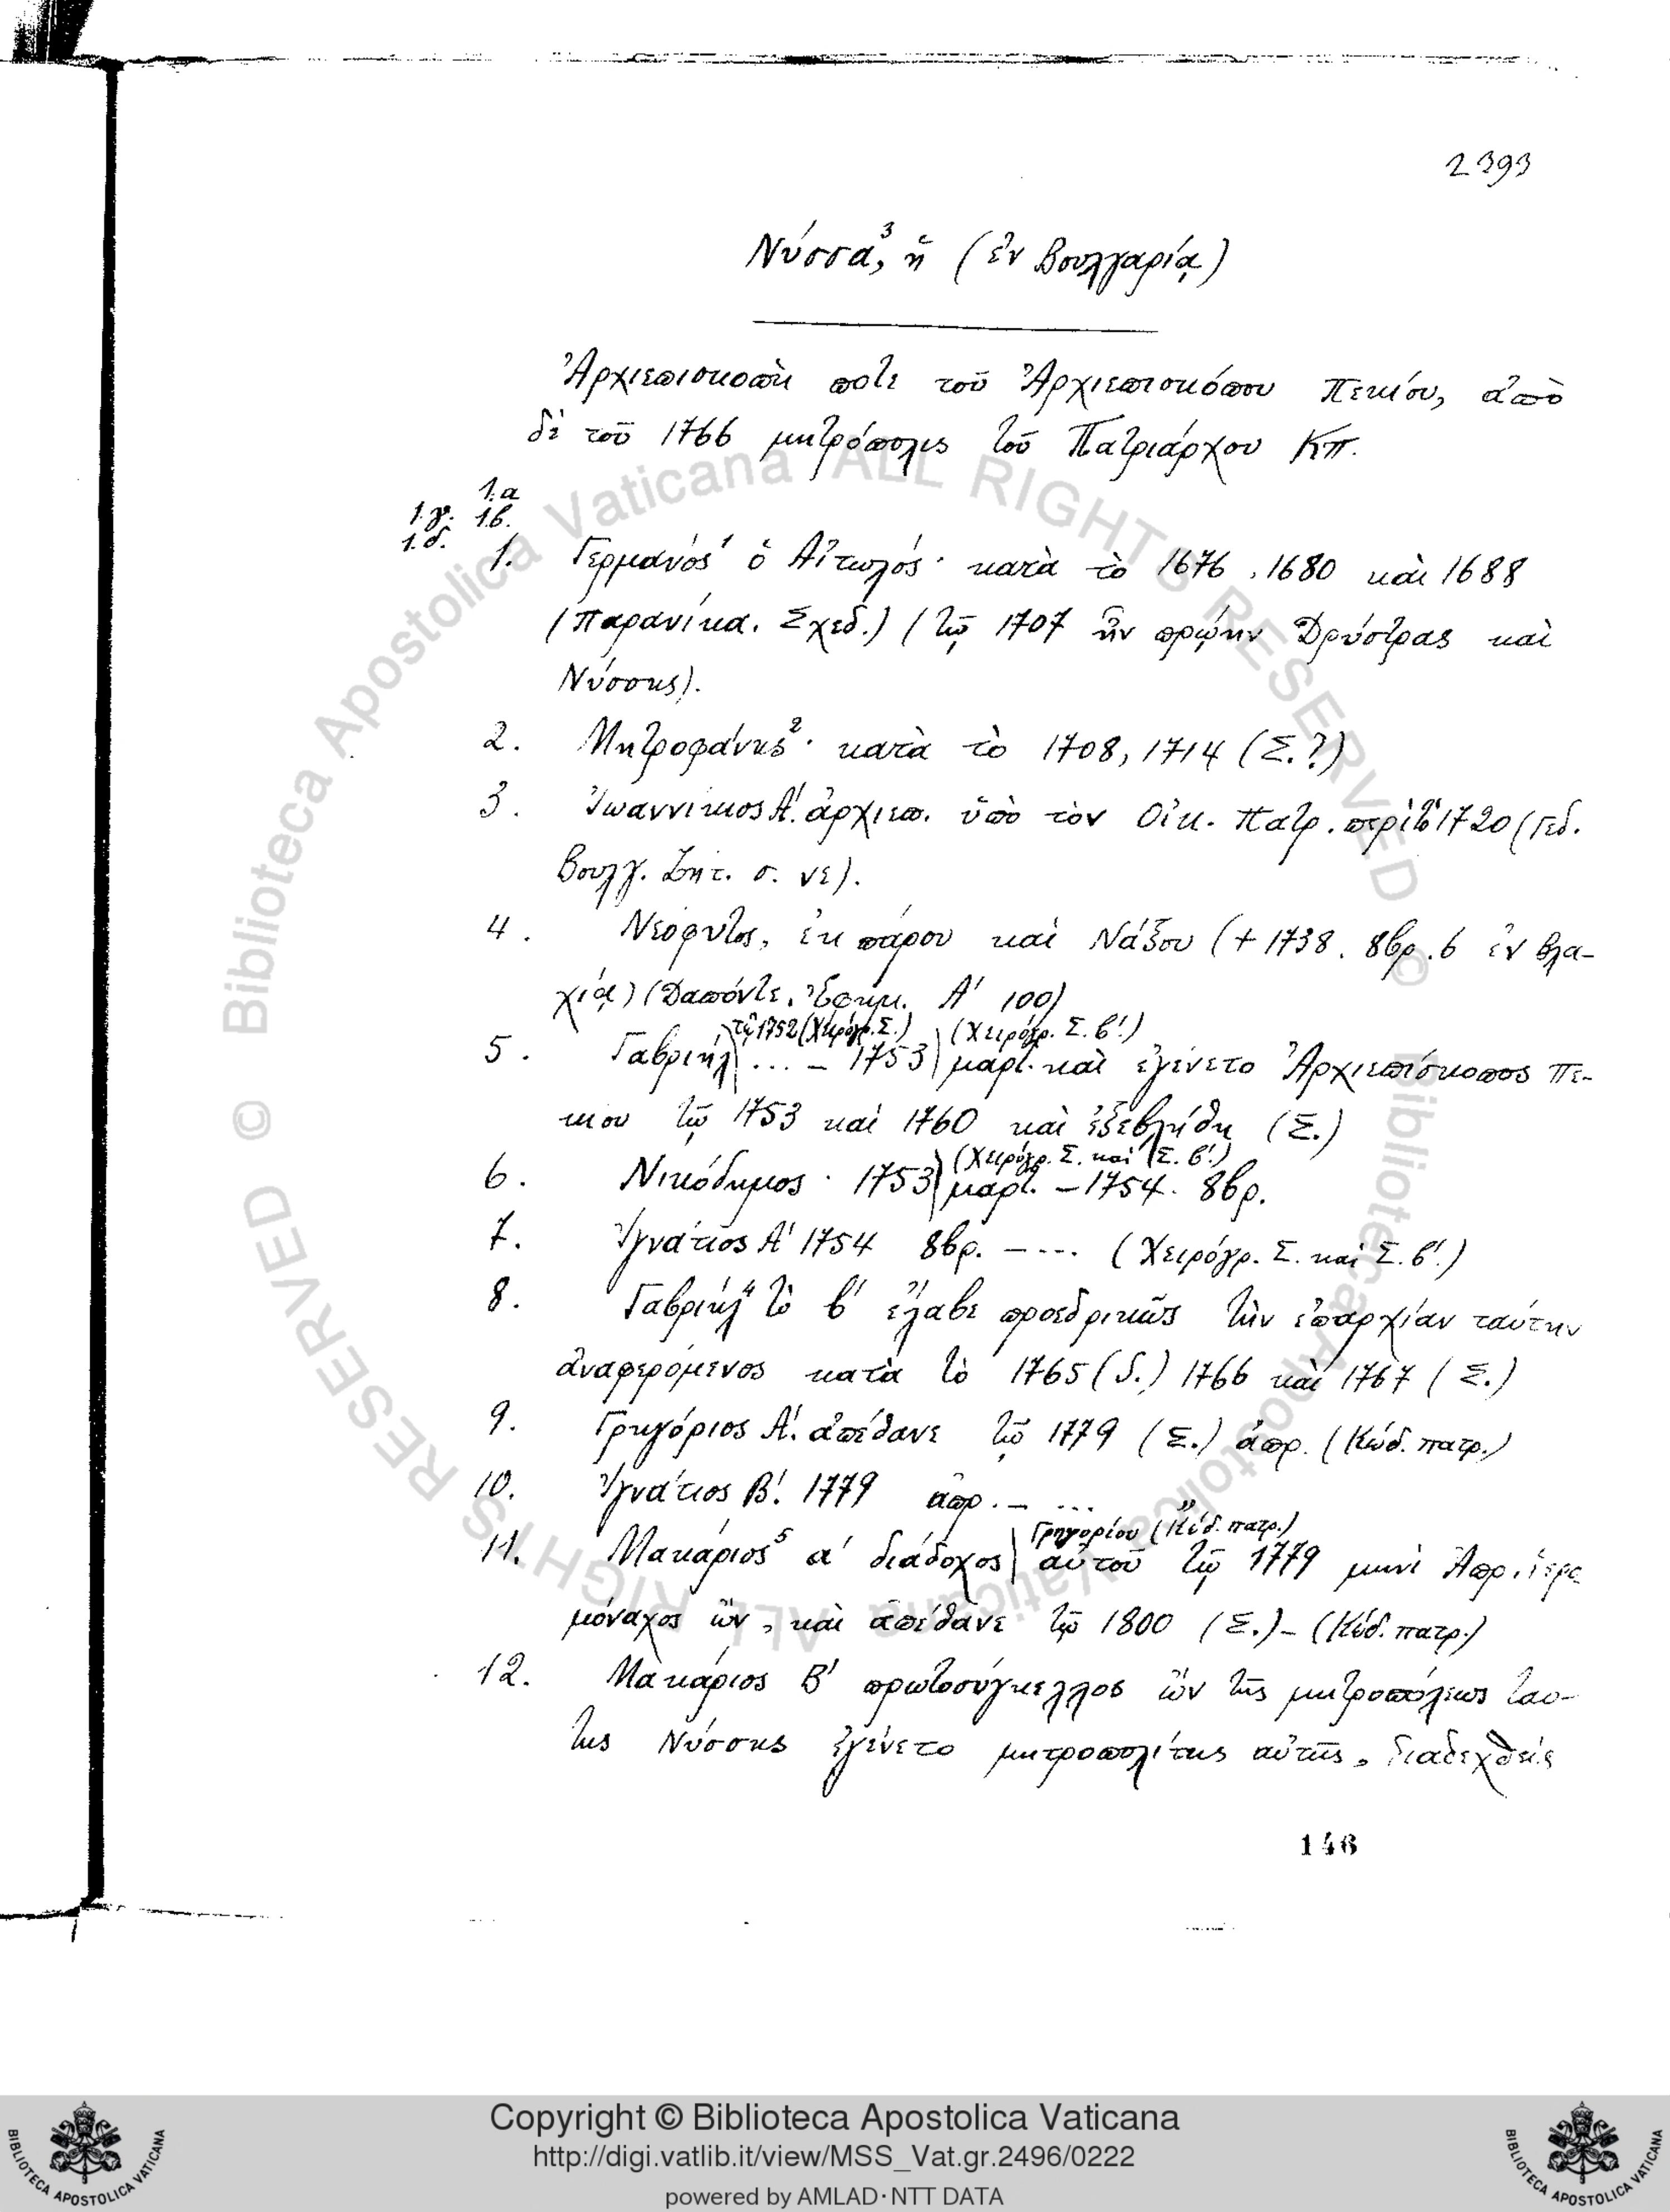 2393
Νύσσα³, ἡ (ἐν Βουλγαρίᾳ)
Ἀρχιεπισκοπὴ ποτε τοῦ Ἀρχιεπισκόπου Πεκίου, ἀπὸ
δὲ τοῦ 1766 μητρόπολις τοῦ Πατριάρχου Κπ.
1.α
1.γ. 1.β.
1.δ.
1. Γερμανός¹ ὁ Αἰτωλός· κατὰ τὸ 1676, 1680 καὶ 1688
(Παρανίκα. Σχεδ.) (τῷ 1707 ἦν πρῴην Δρύστρας καὶ
Νύσσης).
2. Μητροφάνης²· κατὰ τὸ 1708, 1714 (Σ.?)
3. Ἰωαννίκιος Α΄. ἀρχιεπ. ὑπὸ τὸν Οἰκ. Πατρ. περὶ τὸ 1720 (Γεδ.
Βουλγ. Ζητ. σ. νε).
4. Νεόφυτος, ἐκ πάρου καὶ Νάξου (+ 1738. 8βρ. 6 ἐν Βλα-
χίᾳ) (Δαπόντε. Ἐφημ. Α΄ 100)
τῷ 1752 (Χειρόγρ. Σ.) (Χειρόγρ. Σ. β΄.)
5. Γαβριήλ ... – 1753 μαρτ. καὶ ἐγένετο Ἀρχιεπίσκοπος Πε-
κίου τῷ 1753 καὶ 1760 καὶ ἐξεβλήθη (Σ.)
(Χειρόγρ. Σ. καὶ Σ. β΄.)
6. Νικόδημος · 1753 μαρτ. – 1754. 8βρ.
7. Ἰγνάτιος Α΄ 1754 8βρ. – ... (Χειρόγρ. Σ. καὶ Σ. β΄.)
8. Γαβριήλ⁴ τὸ β΄ ἔλαβε προεδρικῶς τὴν ἐπαρχίαν ταύτην
ἀναφερόμενος κατὰ τὸ 1765 (δ.) 1766 καὶ 1767 (Σ.)
9. Γρηγόριος Α΄. ἀπέθανε τῷ 1779 (Σ.) ἀπρ. (Κώδ. πατρ.)
10. Ἰγνάτιος Β΄. 1779 ἀπρ. – ... "
Γρηγορίου (Κώδ. πατρ.)
11. Μακάριος⁵ α΄ διάδοχος αὐτοῦ τῷ 1779 μηνὶ Ἀπρ. ἱερο
μόναχος ὤν, καὶ ἀπέθανε τῷ 1800 (Σ.) – (Κώδ. πατρ.)
12. Μακάριος Β΄ πρωτοσύγκελλος ὢν τῆς μητροπόλεως ταύ-
της Νύσσης ἐγένετο μητροπολίτης αὐτῆς, διαδεχθεὶς
146
© Biblioteca Apostolica Vaticana ALL RIGHTS RESERVED © Biblioteca Apostolica Vaticana ALL RIGHTS RESERVED
Copyright © Biblioteca Apostolica Vaticana
http://digi.vatlib.it/view/MSS_Vat.gr.2496/0222
powered by AMLAD·NTT DATA
BIBLIOTECA APOSTOLICA VATICANA
BIBLIOTECA APOSTOLICA VATICANA